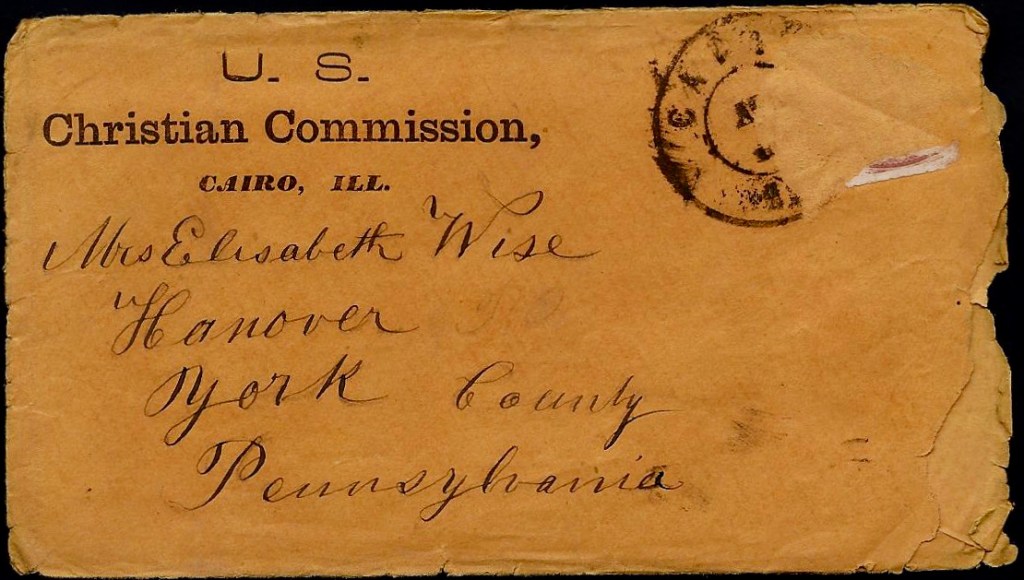 U. S.
Christian Commission,
CAIRO, ILL.
Mrs Elisabeth Wise
Hanover
York County
Pennsylvania